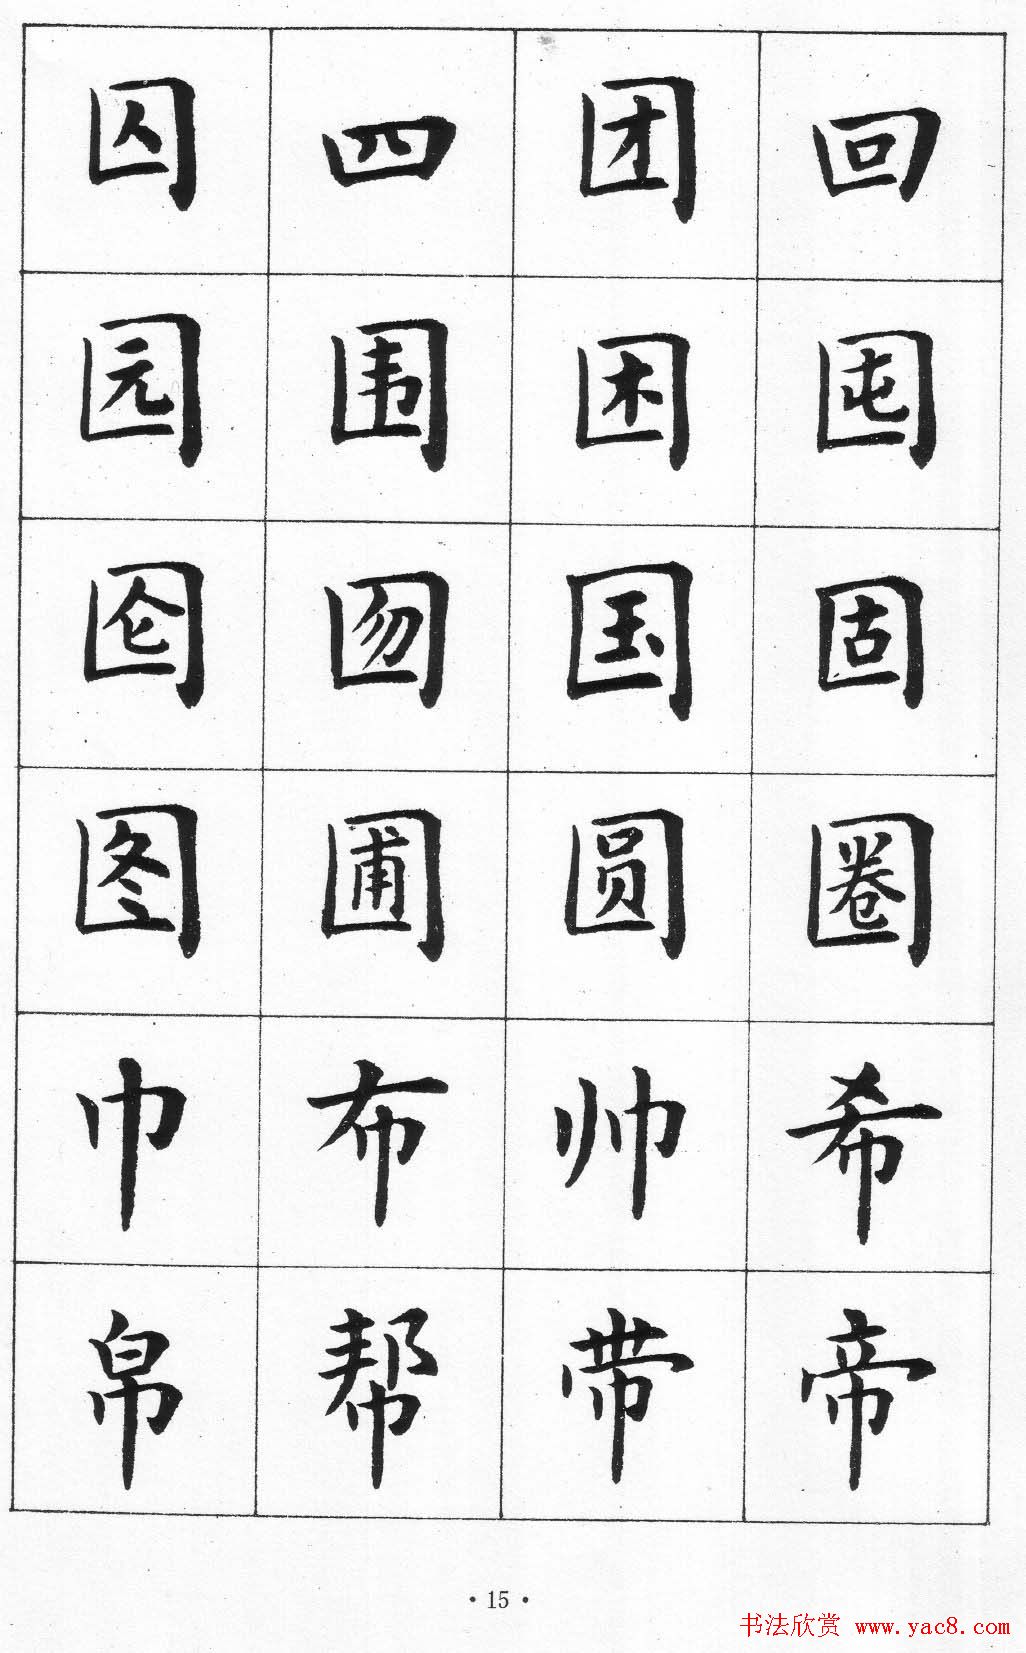 囚 四 团 回
园 围 困 囤
囵 囫 国 固
图 圃 圆 圈
巾 布 帅 希
帛 帮 带 帝
· 15 ·
书法欣赏 www.yac8.com